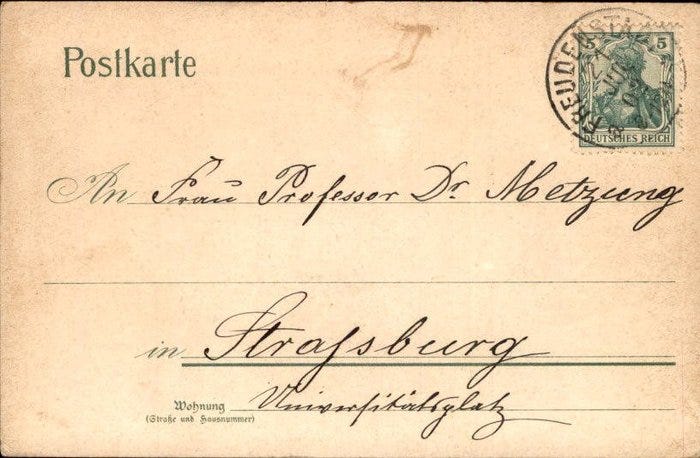 Postkarte
5 5
DEUTSCHES REICH
FREUDENSTADT
JUL
An Frau Professor Dr. Metzung
in Straſsburg
Wohnung Universitätsplatz
(Straße und Hausnummer)